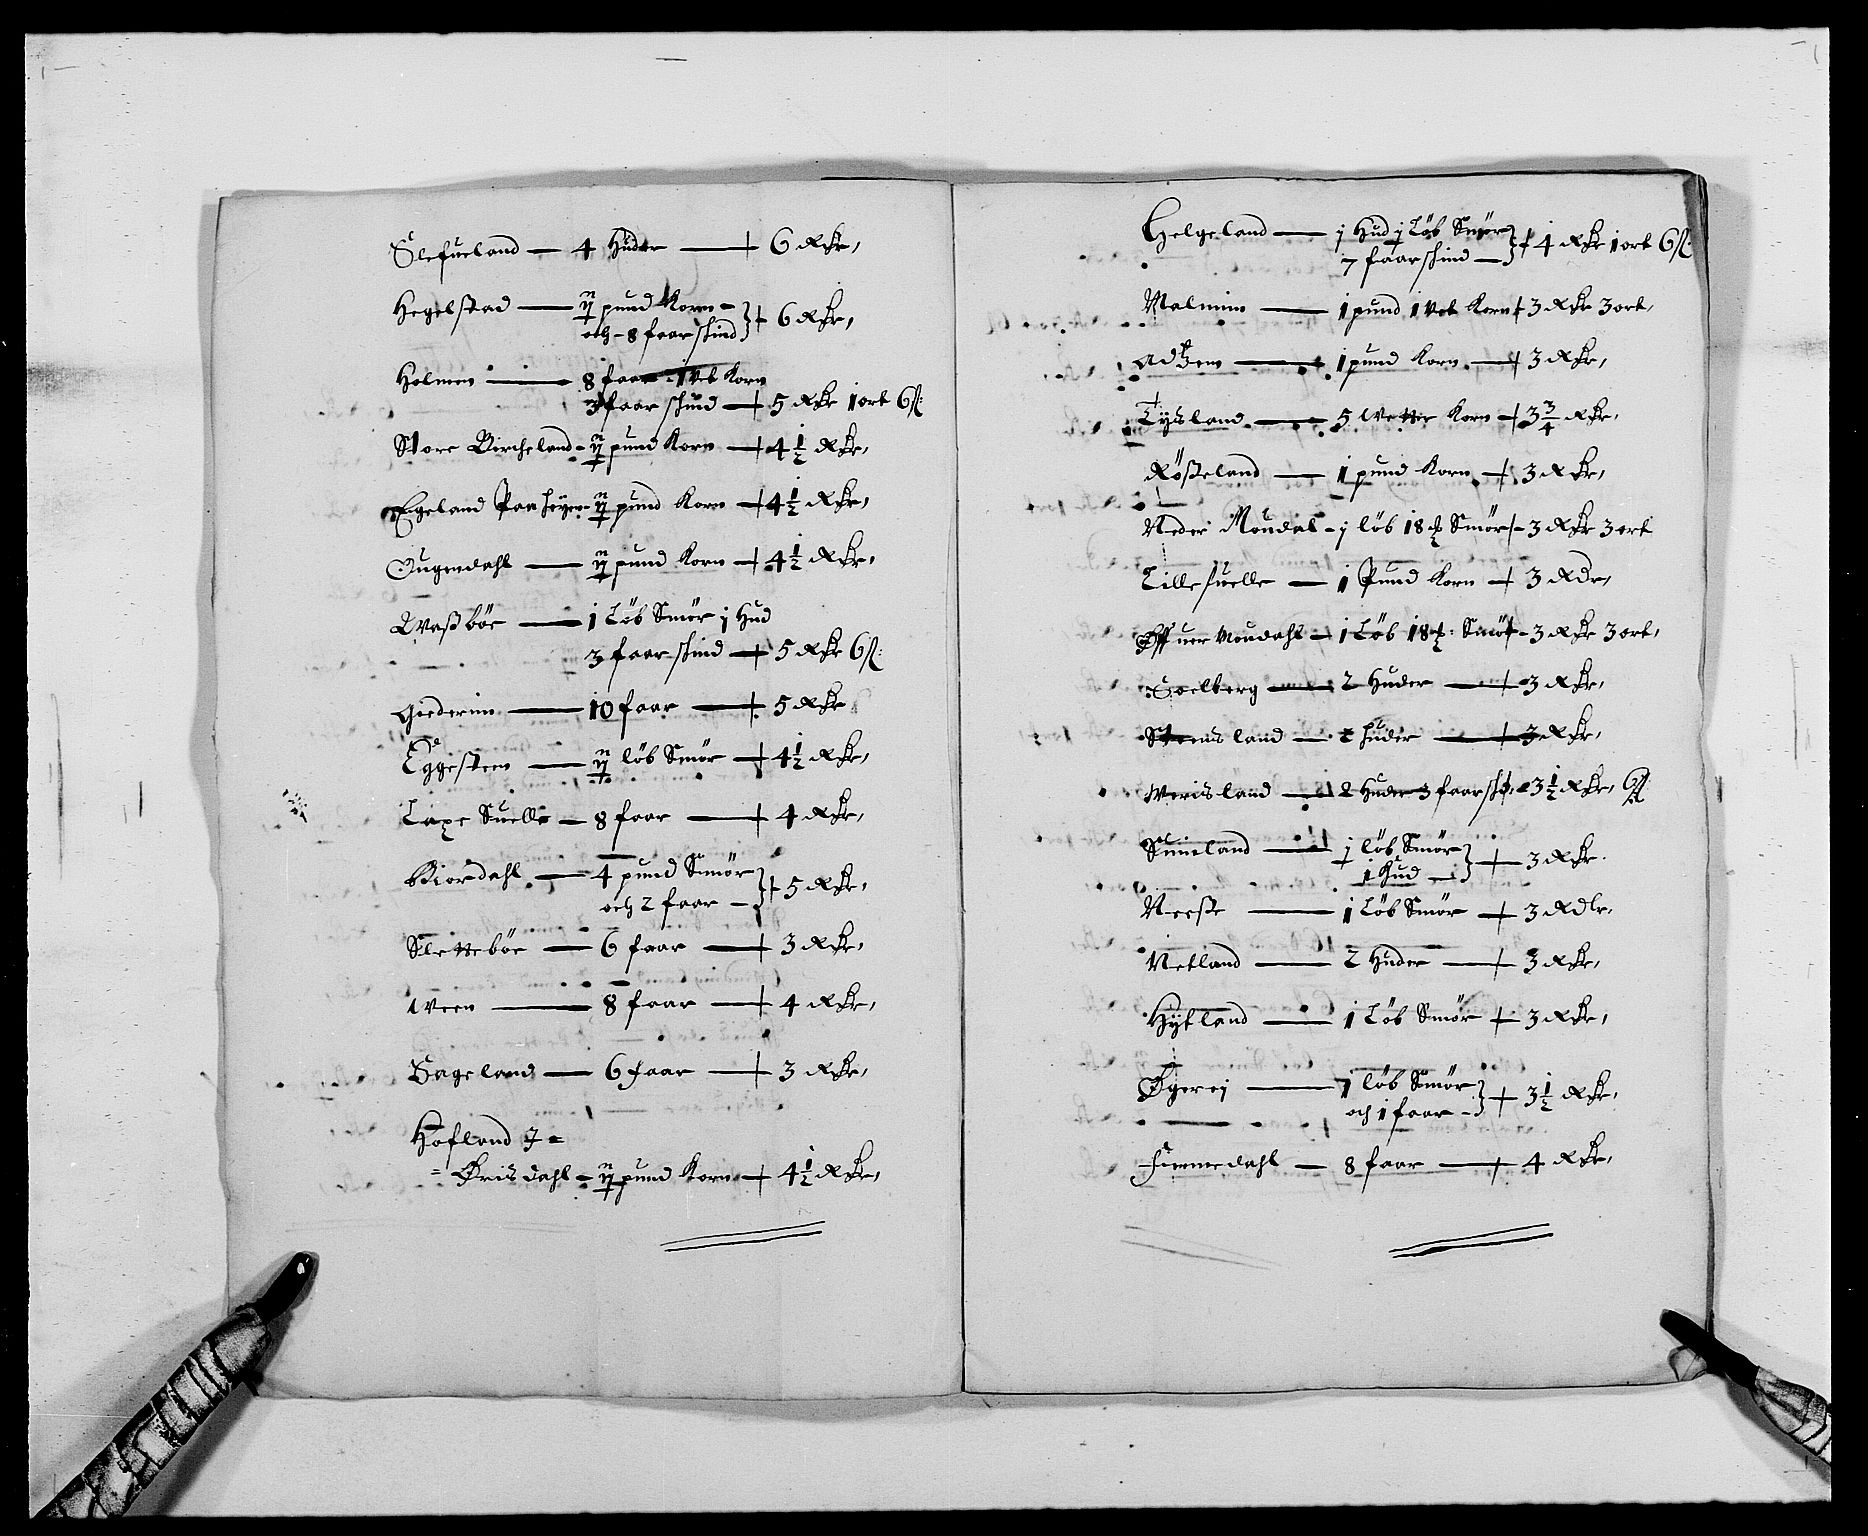 Slefueland — 4 Huder — 6 Rdr,
Hegelstad — pund Korn -
och - 8 faarskind } 6 Rdr,
Holmen — 8 faar 1 Vet Korn
3 faar skind — 5 Rdr 1 ort 6 ß:
Store Birckeland - pund Korn — 4 1/2 Rdr,
Egeland Paa heyen - pund Korn — 4 1/2 Rdr,
Ougendahl — pund Korn — 4 1/2 Rdr,
Waßböe — 1 Löb Smör j Hud
3 faar skind — 5 Rdr 6 ß:
Giederim — 10 faar — 5 Rdr
Eggesteen — löb Smör — 4 1/2 Rdr,
Laxe Suelle — 8 faar — 4 Rdr,
Kiørdahl — 4 pund Smör
och 2 faar - } 5 Rdr,
Sletteböe — 6 faar — 3 Rdr,
Ween — 8 faar — 4 Rdr,
Bageland — 6 faar — 3 Rdr,
Hofland J =
= Ørisdahl - pund Korn — 4 1/2 Rdr,
Helgeland — j Hud j Löb Smör
7 faarskind — } 4 Rdr 1 ort 6 ß:
Malmim — 1 pund 1 Vet Korn 3 Rdr 3 ort,
— 1 pund Korn — 3 Rdr,
Tysland — 5 Wetter Korn — 3 3/4 Rdr,
Rößeland — 1 pund Korn — 3 Rdr,
Neder Moudal - j löb 18 Smör - 3 Rdr 3 ort
Lille suelle — 1 Pund Korn — 3 Rdr,
Øffuer Moudahl — 1 Löb 18 : Smör - 3 Rdr 3 ort,
Soelberg — 2 Huder — 3 Rdr,
Steensland — 2 huder — 3 Rdr,
Werisland — 2 Huder 3 faarsk: 3 1/2 Rdr, 6 ß
Suineland — j löb Smör
1 Hud — } 3 Rdr.
Neeße — 1 Löb Smör — 3 Rdlr,
Netland — 2 Huder — 3 Rdr,
Hytland — 1 Löb Smör — 3 Rdr,
Øgerej — 1 löb Smör
och 1 faar - } 3 1/2 Rdr,
Himmedahl — 8 faar — 4 Rdr,